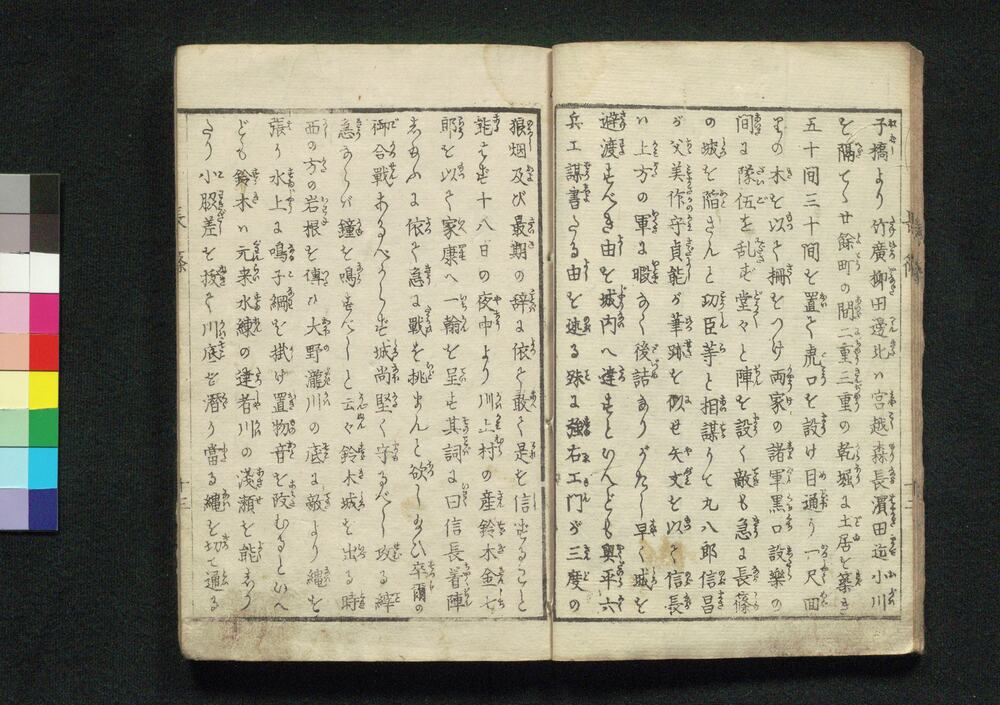 子橋より竹廣柳田邊北ハ宮越森長濱田迄小川
を隔て廿餘町の間二重三重の乾堀に土居を築き
五十間三十間を置て虎口を設け目通り一尺回
りの木を以て柵をつけ両家の諸軍黒口設樂の
間に隊伍を乱さず堂々と陣を設く敵も急に長篠
の城を陥さんと功臣等と相謀りて九八郎信昌
が父美作守貞能が筆跡を似せ矢文を以て信長
ハ上方の軍に暇なく後詰ありがたし早く城を
避渡すべき由を城内へ達すといへども奥平六
兵エ謀書たる由を述る殊に強右エ門が三度の
狼烟及び最期の辞に依て敢て是を信ずること
能はず十八日の夜中より川上村の産鈴木金七
郎を以て家康へ一翰を呈す其詞に曰信長着陣
したまふに依て急に戦を挑まんと欲し給ひ卒爾の
御合戰あるべからず城尚堅く守るべし攻る
急ならバ鐘を鳴すべしと云々鈴木城を出る時
西の方の岩根を傳ひ大野瀧川の底に敵より縄を
張り水上に鳴子綱を掛け置物音を改むるといへ
ども鈴木ハ元来水練の達者川の浅瀬を能しり
たり小脇差を抜て川底を潜り當る縄を切て通る
長篠